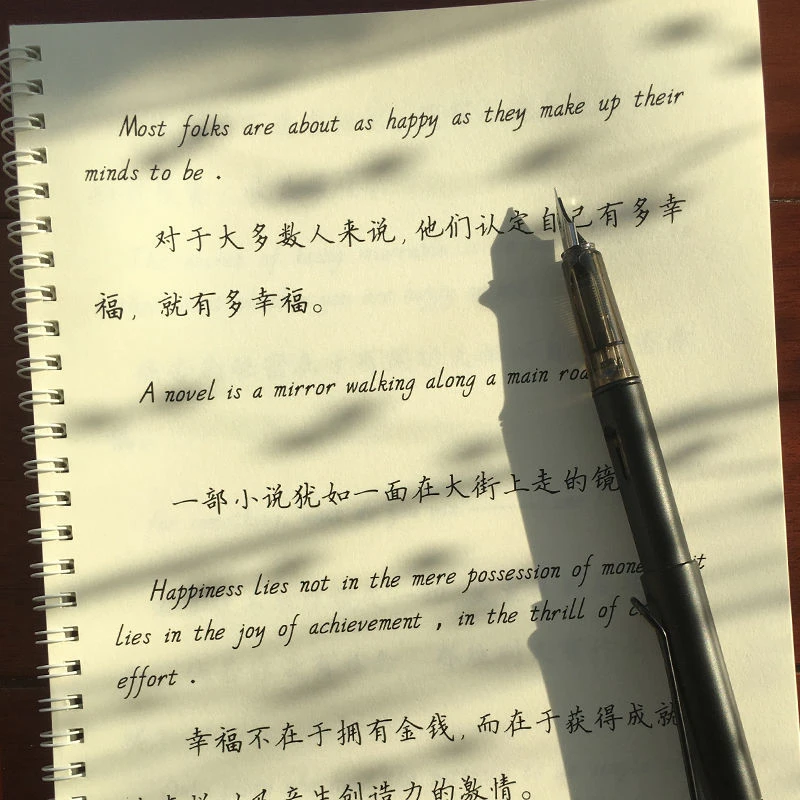 Most folks are about as happy as they make up their
minds to be .
对于大多数人来说，他们认定自己有多幸
福，就有多幸福。
A novel is a mirror walking along a main
一部小说犹如一面在大街上走的镜
Happiness lies not in the mere possession of it
lies in the joy of achievement , in the thrill of
effort .
幸福不在于拥有金钱，而在于获得成就
产生创造力的激情。